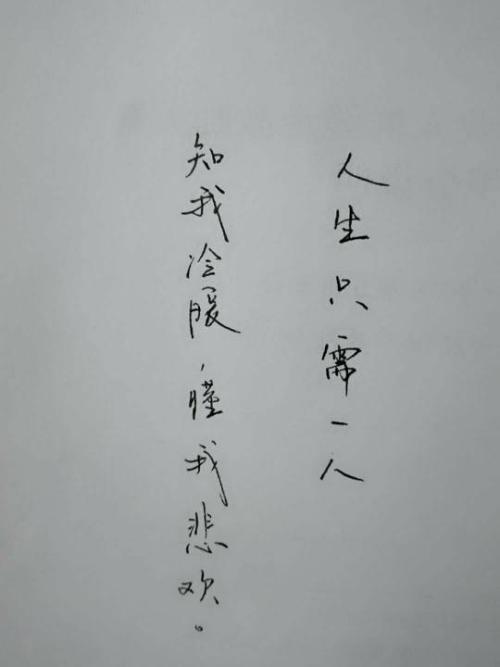 人生只需一人
知我冷暖，懂我悲欢。